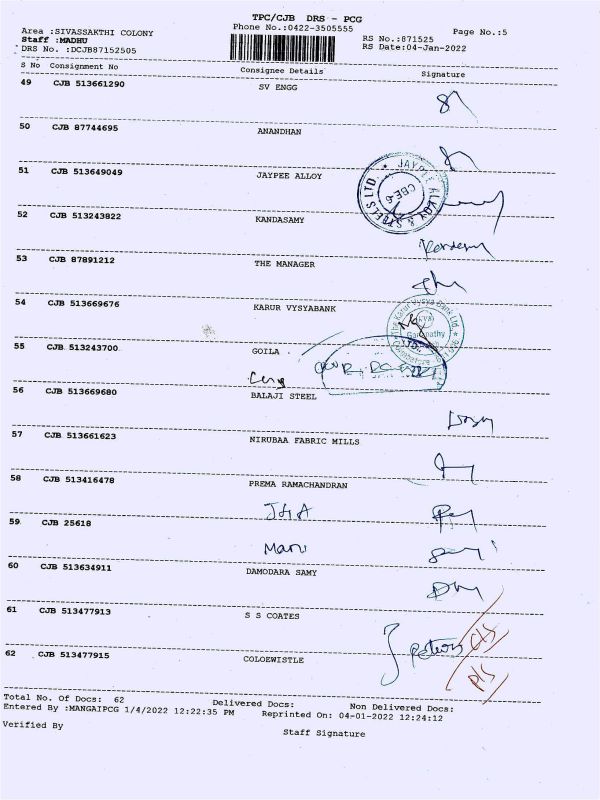 TPC/CJB DRS - PCG
Area :SIVASSAKTHI COLONY Phone No.:0422-3505555 Page No.:5
Staff :MADHU RS No.:871525
DRS No. :DCJB87152505 RS Date:04-Jan-2022
S No Consignment No Consignee Details Signature
49 CJB 513661290 SV ENGG
50 CJB 87744695 ANANDHAN
51 CJB 513649049 JAYPEE ALLOY
JAYPEE ALLOY & STEELS LTD.
CBE-6
52 CJB 513243822 KANDASAMY
53 CJB 87891212 THE MANAGER
54 CJB 513669676 KARUR VYSYABANK
The Karur Vysya Bank Ltd.
55 CJB 513243700 GOILA
56 CJB 513669680 BALAJI STEEL
57 CJB 513661623 NIRUBAA FABRIC MILLS
58 CJB 513416478 PREMA RAMACHANDRAN
59 CJB 25618
Mani
60 CJB 513634911 DAMODARA SAMY
61 CJB 513477913 S S COATES
62 CJB 513477915 COLOEWISTLE
Total No. Of Docs: 62 Delivered Docs: Non Delivered Docs:
Entered By :MANGAIPCG 1/4/2022 12:22:35 PM Reprinted On: 04-01-2022 12:24:12
Verified By Staff Signature